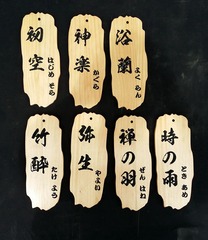 浴蘭
よくらん
神楽
かぐら
初空
はじめ そら
時の雨
とき あめ
禅の羽
ぜん はね
弥生
やよい
竹酔
たけ よう